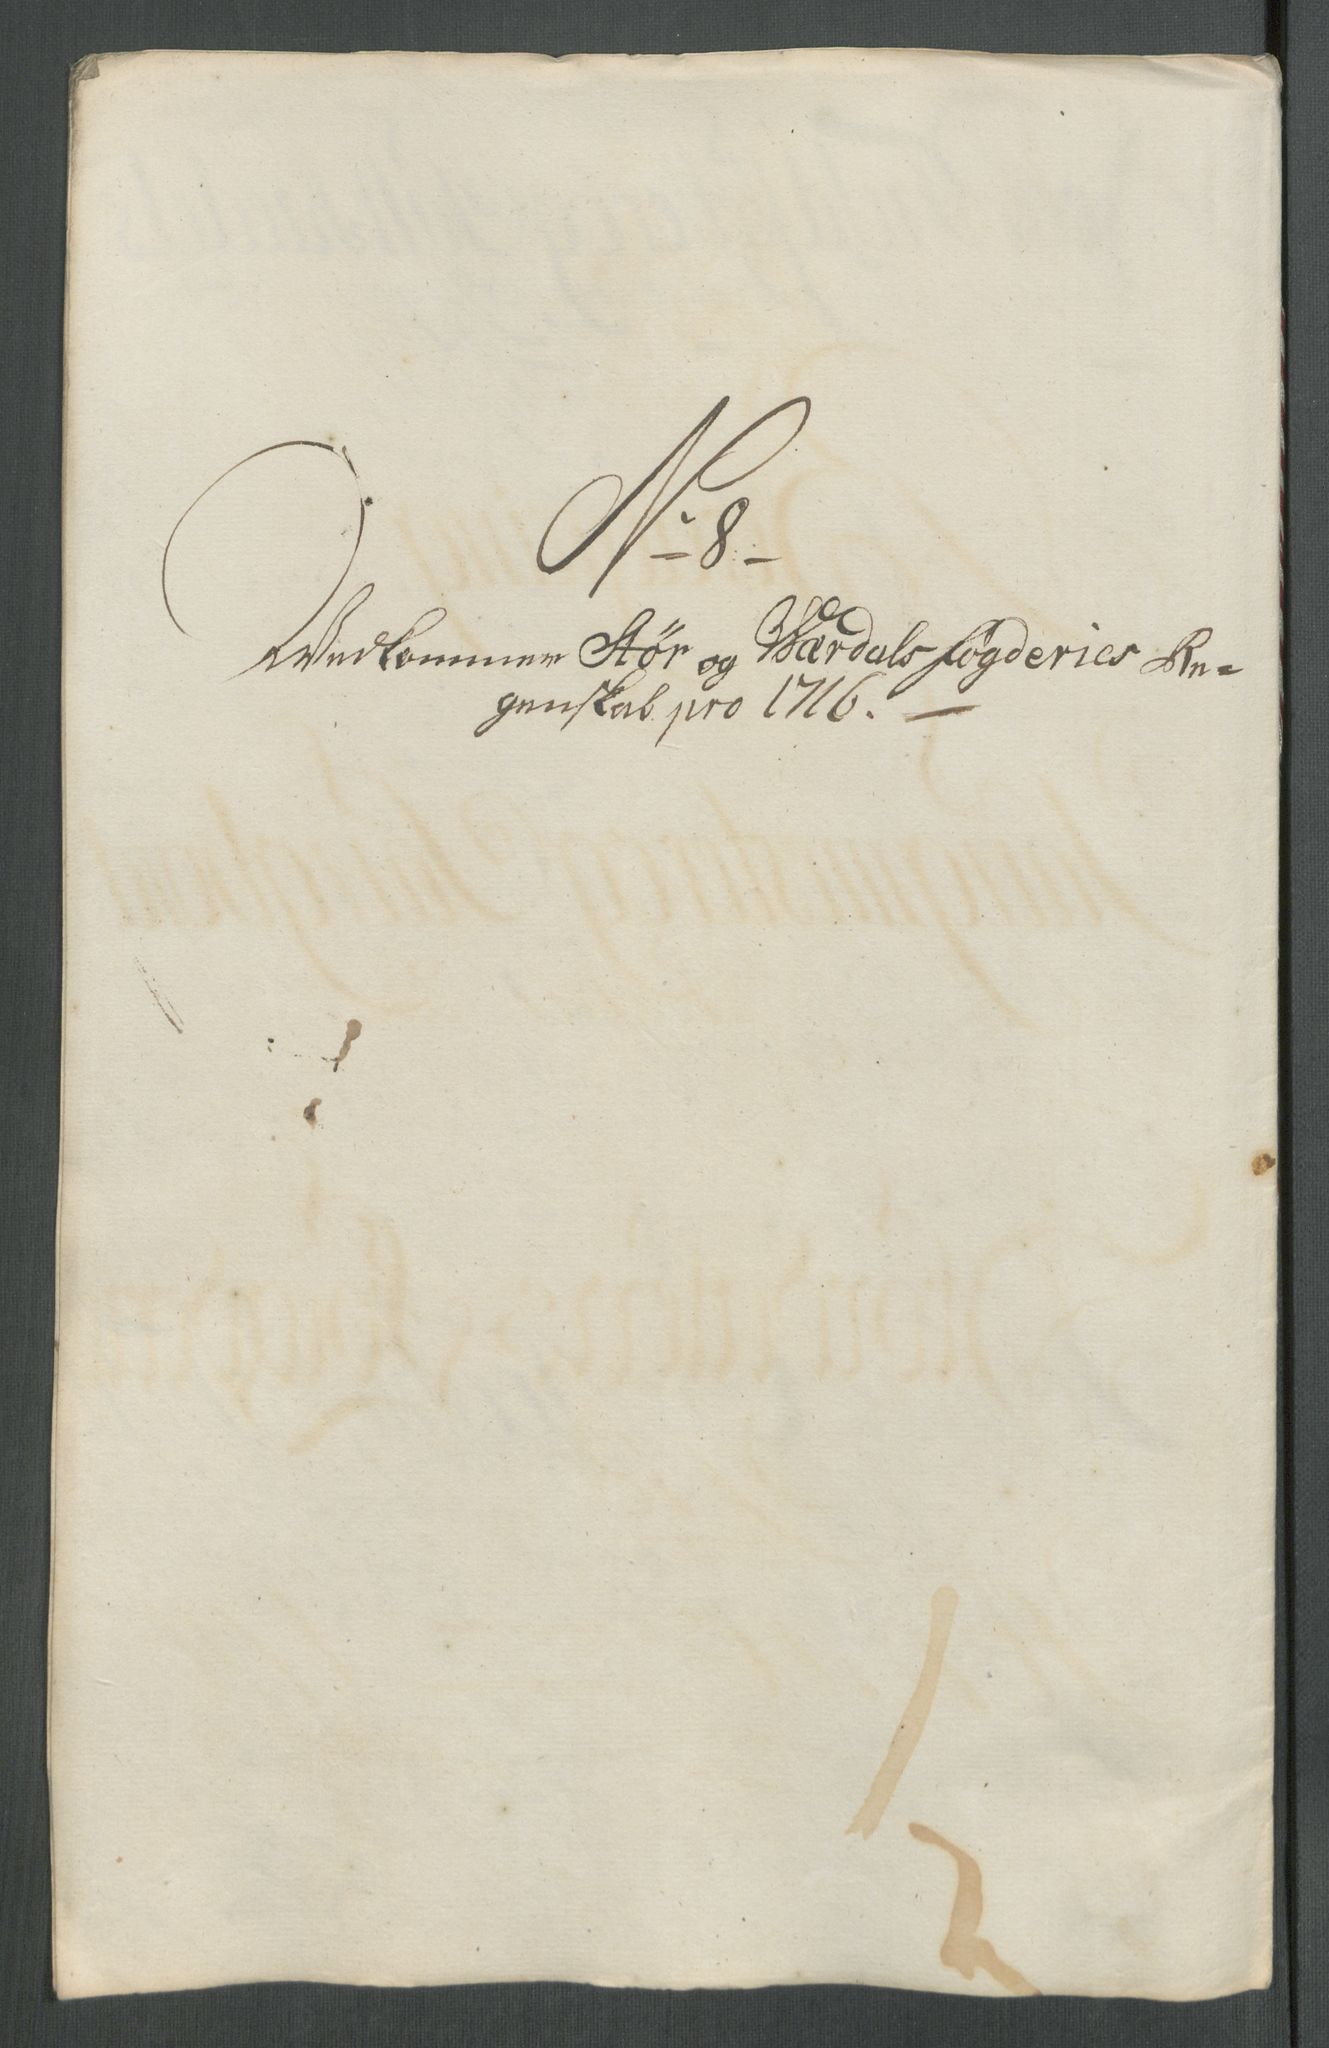 No 8
Vedkommer Stör og Værdals fögderies Re-
genskab pro 1716.